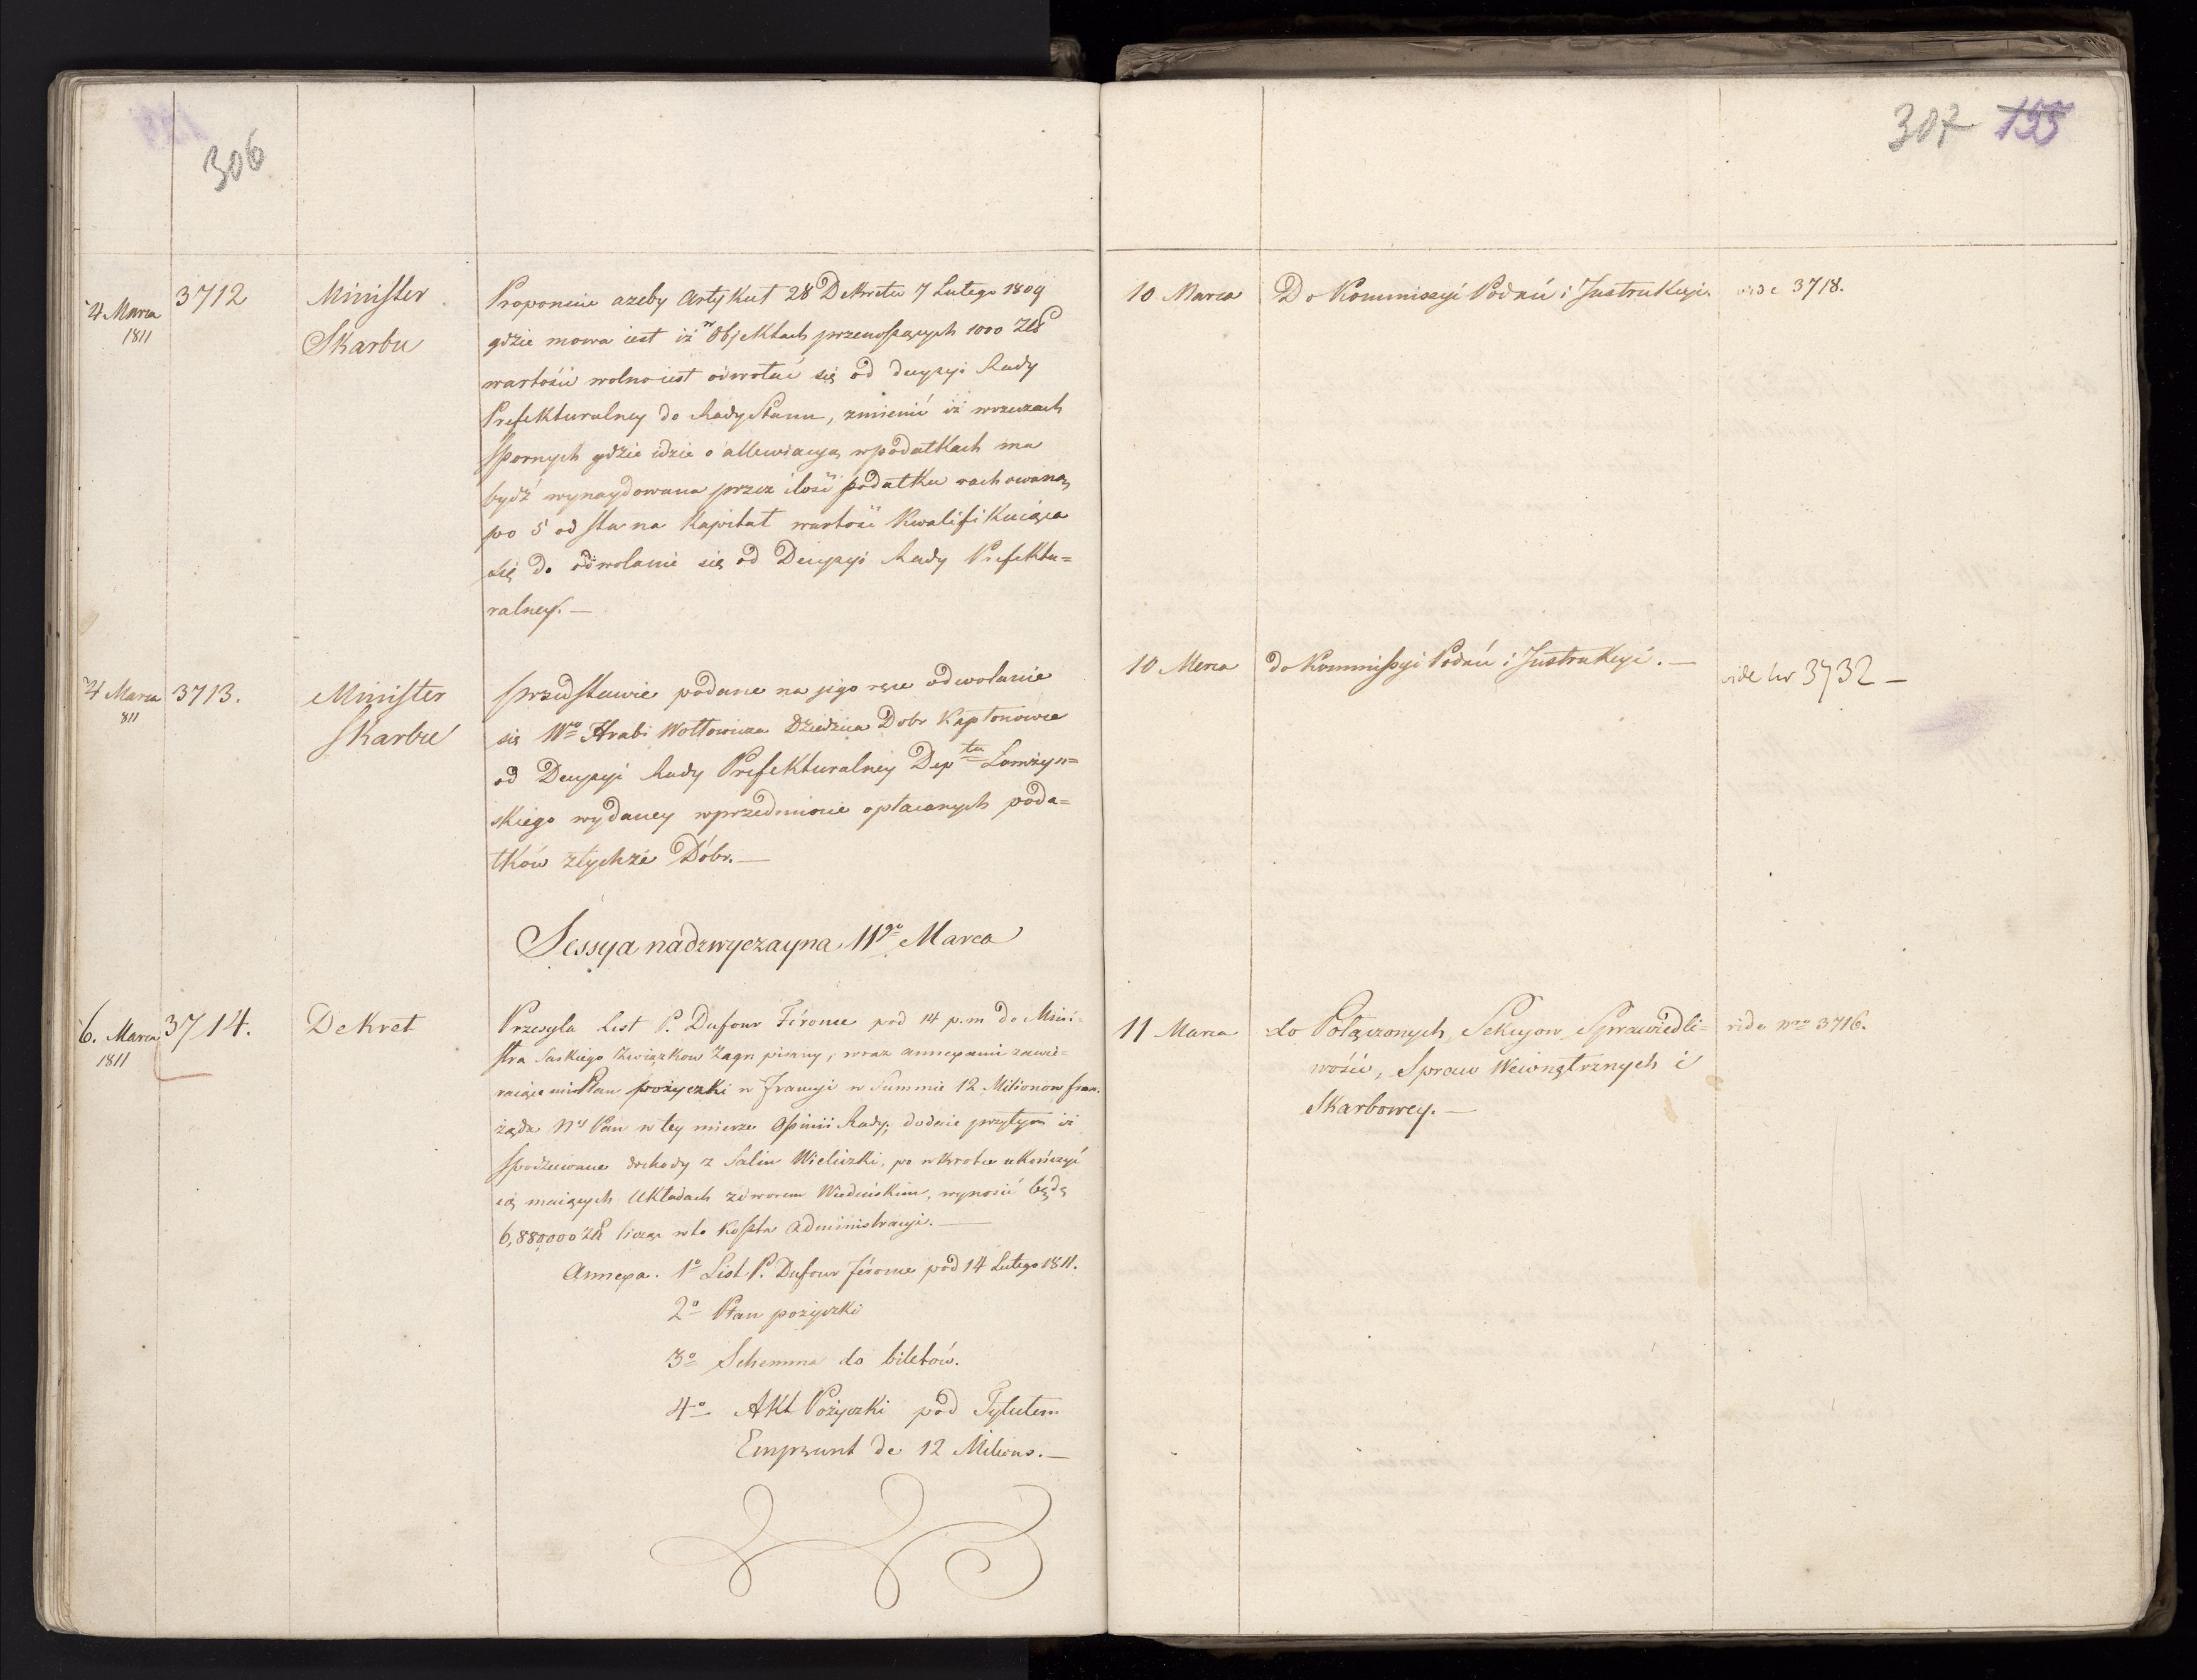 306
4 Marca
1811
3712
Minister
Skarbu
Proponuie azeby Artykuł 28 Dekretu 7 Lutego 1809
gdzie mowa iest iż w Objektach przenoszących 1000 Złł
wartości wolno iest odwołać się od decyzyi Rady
Prefekturalney do Rady Stanu, zmienić iż w rzeczach
spornych gdzie idzie o allewiacyą w podatkach ma
bydź wynaydowana przez ilość podatku rachowaną
po 5 od sta na Kapitał wartość Kwalifikuiąca
się do odwołanie się od Decyzyi Rady Prefektu=
ralney. —
4 Marca
811
3713.
Minister
Skarbu
przedstawie podane na jego ręce odwołanie
się Wo Hrabi Wołłowicza Dziedzica Dobr Kaptonowce
od Decyzyi Rady Prefekturalney Dep tu Łomżyn=
skiego wydaney w przedmiocie opłacanych poda=
tków z tychże Dóbr. —
Sessya nadzwyczayna 11go Marca
6. Marca
1811
3714.
Dekret
Przesyła List P. Dufour Féronce pod 14 p.m do Mini=
stra Saskiego Związkow Zagr: pisany, wraz annexami zawie=
raiącemi Plan pożyczki w Francyi w Summie 12 Milionow fran.
żąda Ny Pan w tey mierze Opinii Rady; dodaie przytym iż
spodziewane dochody z Salin Wieliczki, po wkrotce ukończyć
się maiących Układach z dworem Wiedeńskim, wynosić będą
6,880,000 Złł licząc w to Koszta Administracyi. —
Annexa. 1o List P. Dufour Féronce pod 14 Lutego 1811.
2o Plan pożyczki
3o Schemma do biletów.
4o Akt Pożyczki pod Tytułem
Emprunt de 12 Milions. —
307 155
10 Marca
Do Kommissyi Podań i Instrukcyi.
vide 3718.
10 Marca
do Kommissyi Podań i Instrukcyi. —
vide Nr 3732 —
11 Marca
do Połączonych Sekcyow Sprawiedli=
wości, Spraw Wewnętrznych i
Skarbowey. —
vide Nro 3716.